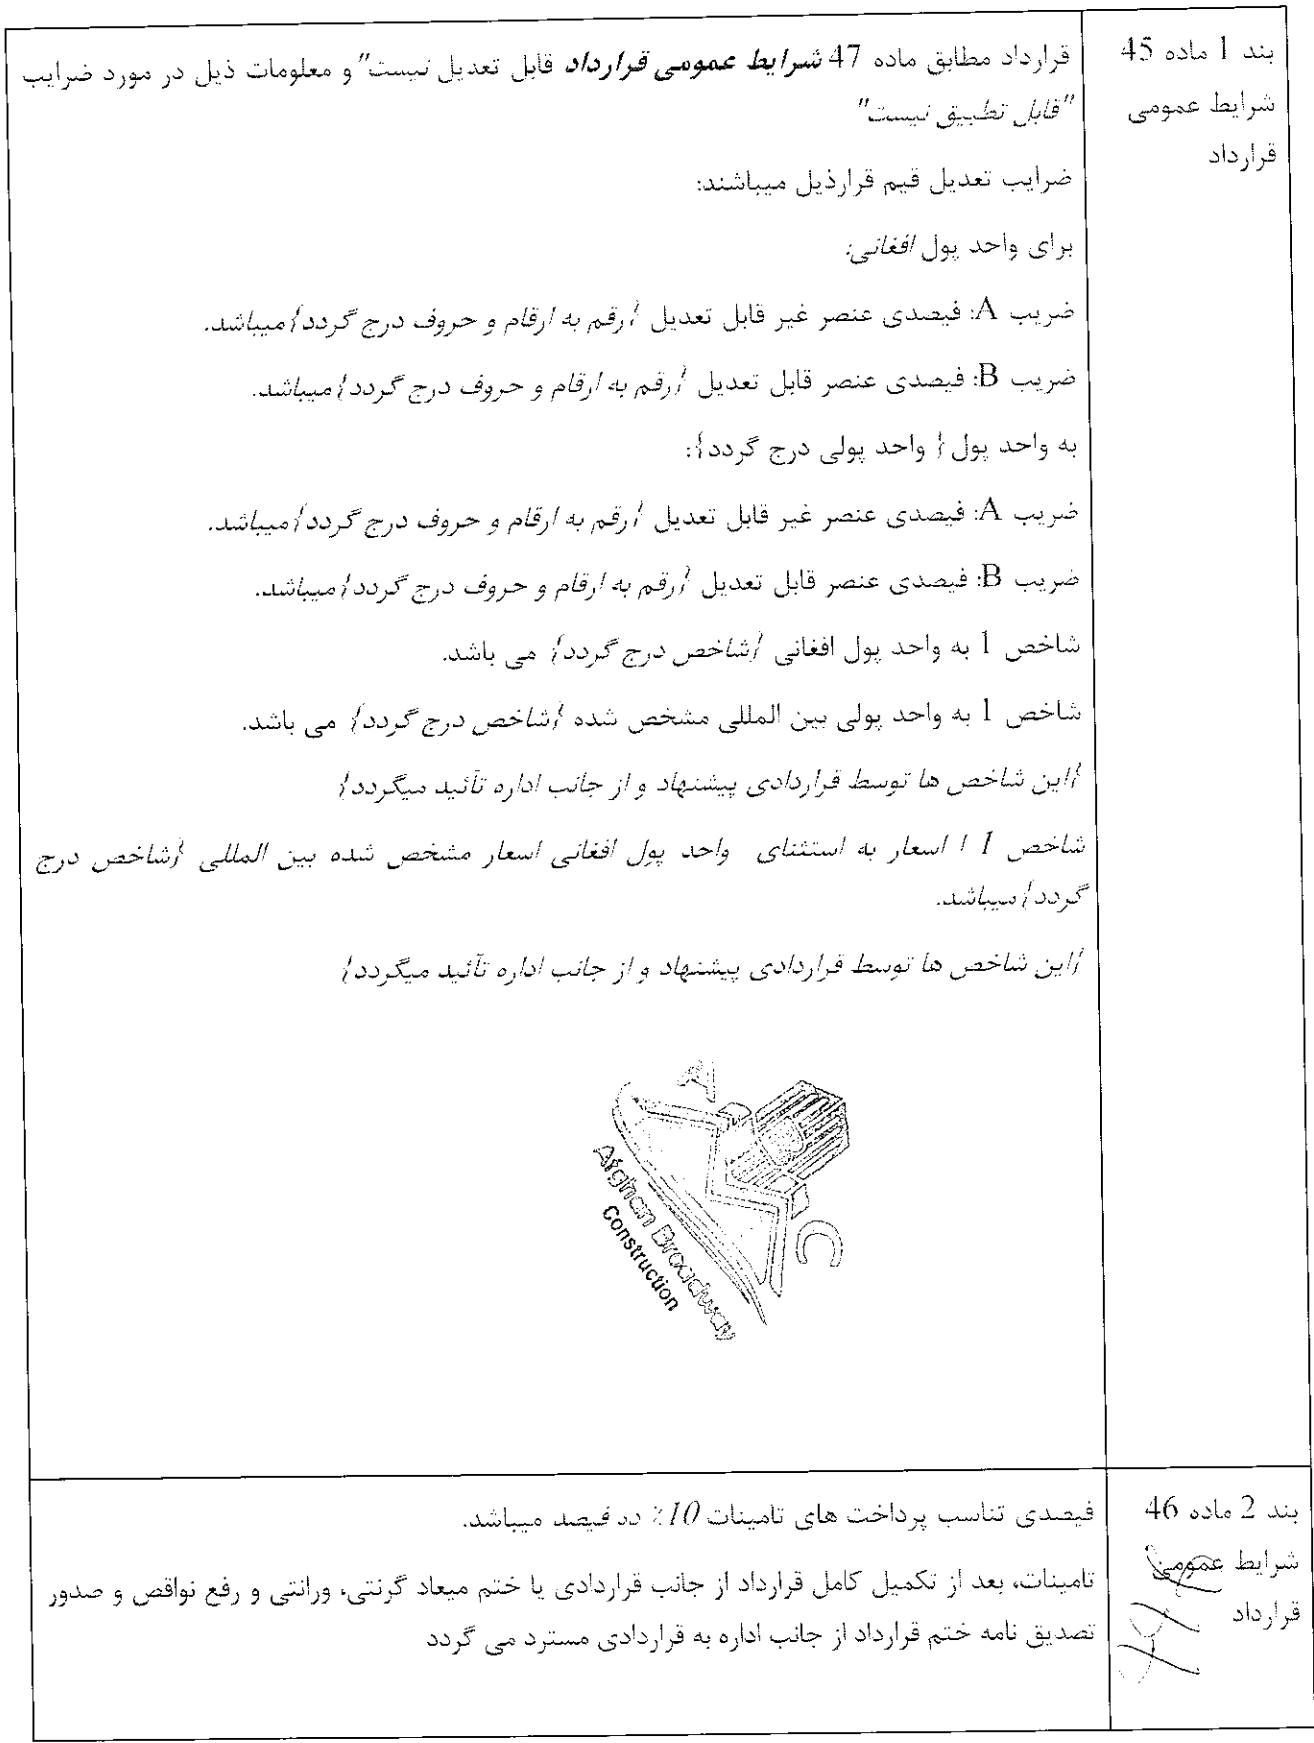 بند 1 ماده 45
شرایط عمومی
قرارداد
قرارداد مطابق ماده 47 شرایط عمومی قرارداد قابل تعدیل نیست" و معلومات ذیل در مورد ضرایب
"قابل تطبیق نیست"
ضرایب تعدیل قیم قرارذیل میباشند:
برای واحد پول افغانی:
ضریب A: فیصدی عنصر غیر قابل تعدیل {رقم به ارقام و حروف درج گردد} میباشد.
ضریب B: فیصدی عنصر قابل تعدیل {رقم به ارقام و حروف درج گردد} میباشد.
به واحد پول { واحد پولی درج گردد}:
ضریب A: فیصدی عنصر غیر قابل تعدیل {رقم به ارقام و حروف درج گردد} میباشد.
ضریب B: فیصدی عنصر قابل تعدیل {رقم به ارقام و حروف درج گردد} میباشد.
شاخص 1 به واحد پول افغانی {شاخص درج گردد} می باشد.
شاخص 1 به واحد پولی بین المللی مشخص شده {شاخص درج گردد} می باشد.
{این شاخص ها توسط قراردادی پیشنهاد و از جانب اداره تائید میگردد}
شاخص 1 اسعار به استثنای واحد پول افغانی اسعار مشخص شده بین المللی {شاخص درج
گردد} میباشد.
{این شاخص ها توسط قراردادی پیشنهاد و از جانب اداره تائید میگردد}
A
C
Afghan Broadway
Construction
بند 2 ماده 46
شرایط عمومی
قرارداد
فیصدی تناسب پرداخت های تامینات 10٪ ده فیصد میباشد.
تامینات، بعد از تکمیل کامل قرارداد از جانب قراردادی یا ختم میعاد گرنتی، ورانتی و رفع نواقص و صدور
تصدیق نامه ختم قرارداد از جانب اداره به قراردادی مسترد می گردد